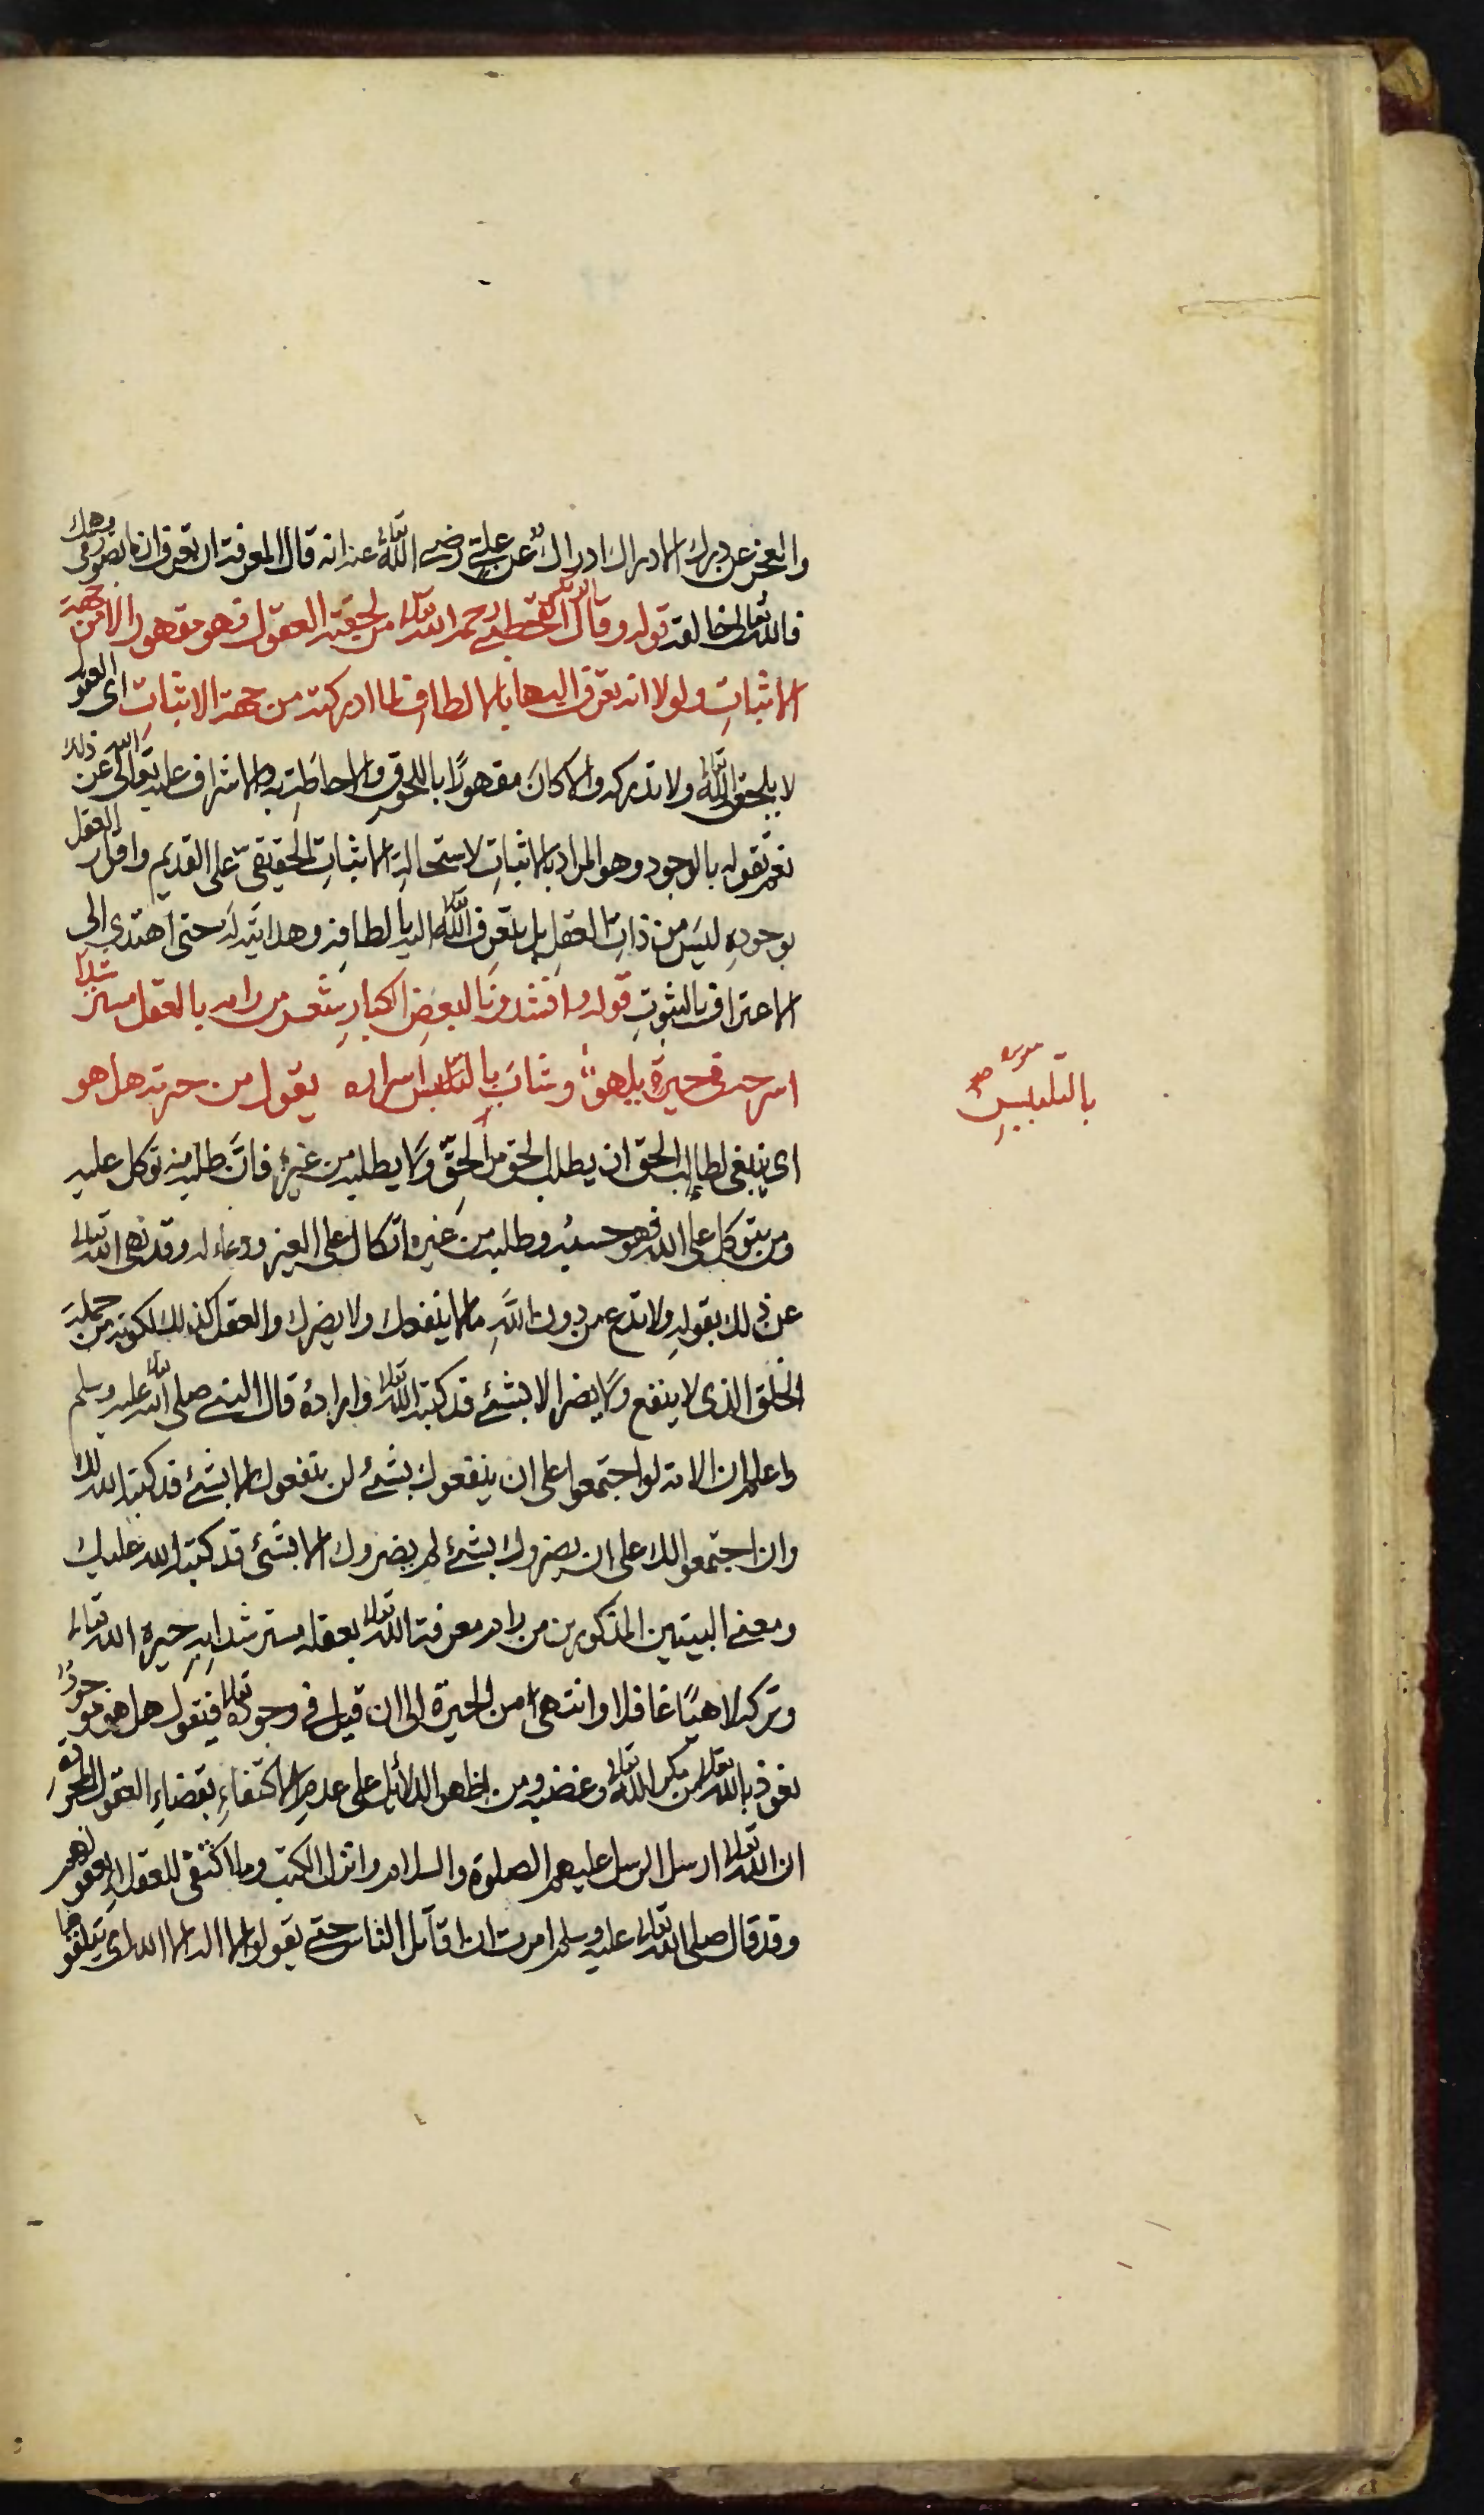 والعجز عن درك الادراك ادراك عن علي رضي الله تعالى عنه انه قال المعرفة ان تعرف ان ما تصور في وهمك
فالله تعالى خالقه قوله وقال القحطبي رحمه الله تعالى من لحقته العقول فهو مقهور الا من جهة
الاثبات ولولا انه تعرف اليها بالالطاف لما ادركته من جهة الاثبات اى العقول
لا يلحق الله تعالى ولا تدركه والا كان مقهورًا باللحوق والاحاطة به والاشراف عليه تعالى الله عن ذلك
نعم تقوله بالوجود وهو المراد بالاثبات لاستحالة الاثبات الحقيقي على القديم واقرار العقل
بوجوده ليس من ذات العقل بل بتعرف الله تعالى اليه بالطافه وهدايته له حتى اهتدى الى
الاعتراف بالثبوت قوله وانشدونا لبعض الكبار شعر من رامه بالعقل مسترشدا
اسرحه في حيرة يلهو وشاب بالتلبيس اسراره يقول من حيرته هل هو
بالتلبيس
اى ينبغى لطالب الحق ان يطلب الحق من الحق ولا يطلبه من غيره فان طلبه منه توكل عليه
ومن يتوكل على الله فهو حسبه وطلبه من غيره اتكال على الغير ودعاء له وقد نهى الله تعالى
عن ذلك بقوله ولا تدع من دون الله ما لا ينفعك ولا يضرك والعقل كذلك لكونه من جملة
الخلق الذى لا ينفع ولا يضر الا بشئ قد كتبه الله تعالى واراده قال النبي صلى الله تعالى عليه وسلم
واعلم ان الامة لو اجتمعوا على ان ينفعوك بشئ لن ينفعوك الا بشئ قد كتبه الله لك
وان اجتمعوا لك على ان يضروك بشئ لم يضروك الا بشئ قد كتبه الله عليك
ومعنى البيتين المذكورين من رام معرفة الله تعالى بعقله مسترشدا به حيره الله تعالى
وتركه لاهيًا غافلا وانتهى امن الحيرة الى ان قيل في وجوده تعالى فيقول هل هو موجودٌ
نعوذ بالله تعالى من مكر الله تعالى وغضبه ومن اظهر الدلائل على عدم الاكتفاء بقضاء العقول المجردة
ان الله تعالى ارسل الرسل عليهم الصلوة والسلام وانزل الكتب وما اكتفى للعقلاء بعقولهم
وقد قال صلى الله تعالى عليه وسلم امرت ان اقاتل الناس حتى يقولوا لا اله الا الله اى يتلقوها